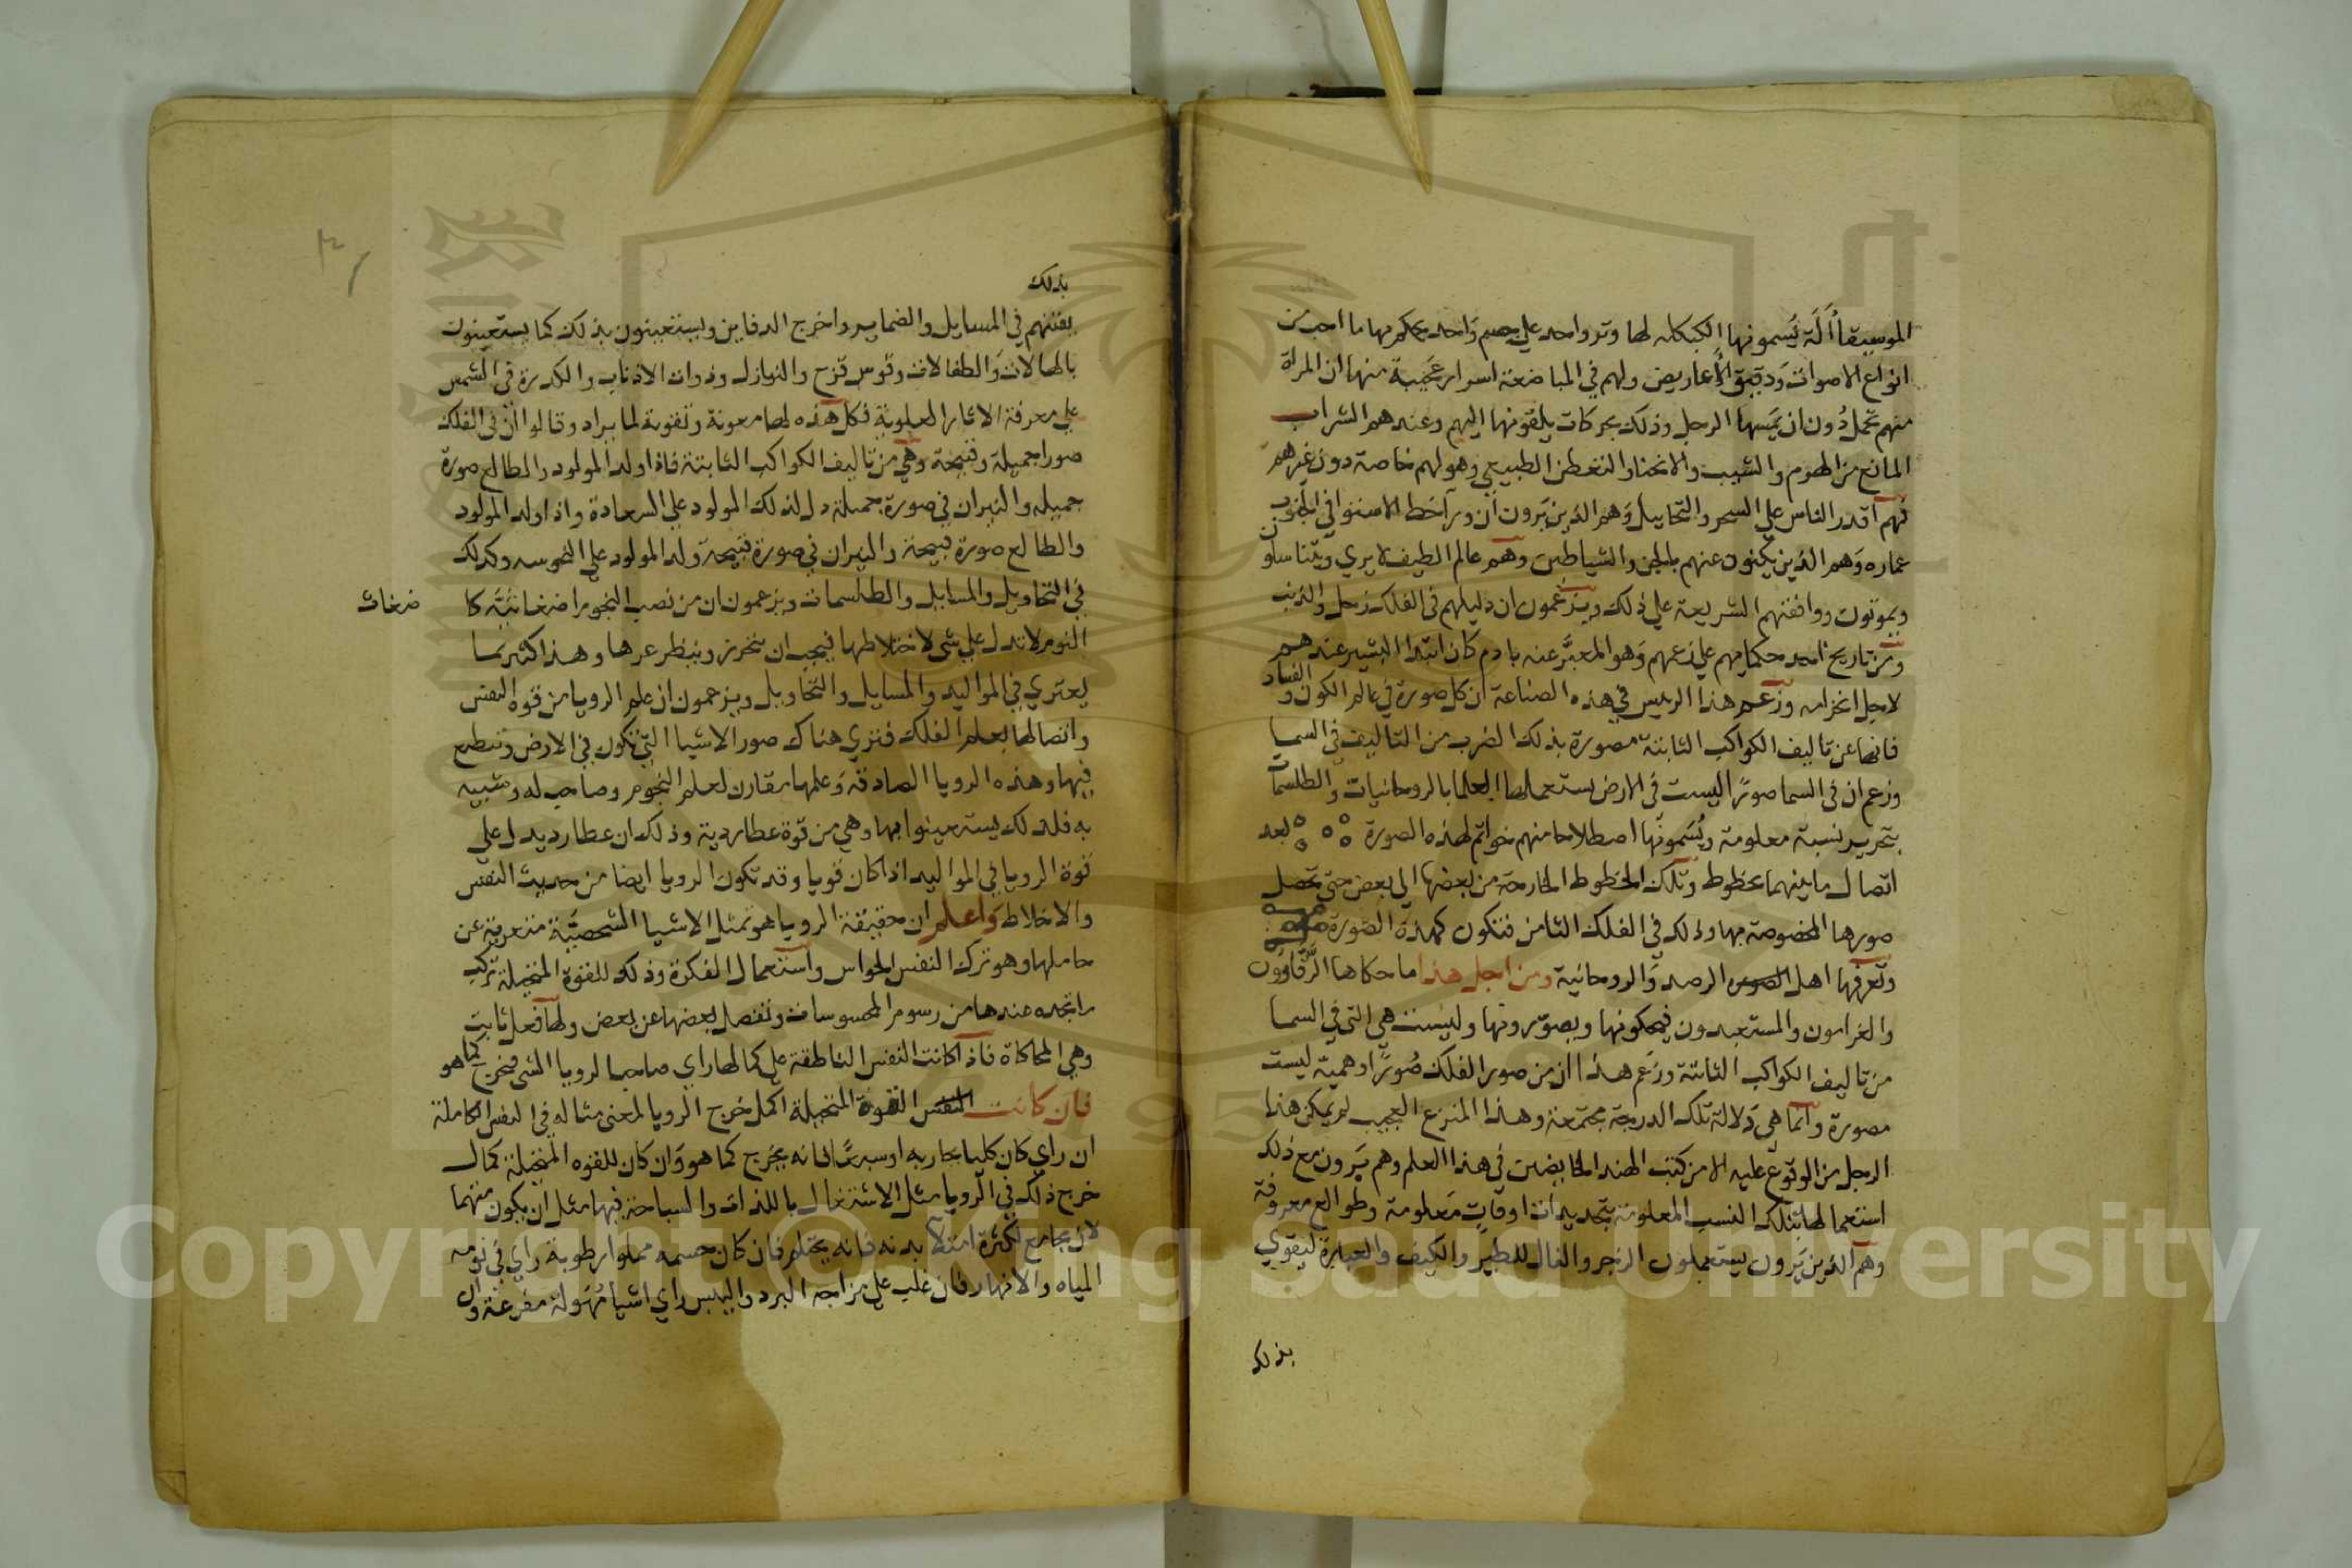 الموسيقا ألَة يُسمونها الكبكله لها وتر واحد على جسم وَاحد يحكم بها ما احب من
انواع الاصوات وَدقيق الأعاريض ولهم في المباضعة اسرار عَجيبة منها ان المراة
منهم تحمل دُون ان يَمَسها الرجل وذلك بحركات يلقونها اليهم وعندهم الشراب
المانع من الهرم والشيب والانحنا والنغطن الطبيعي وهو لهم خاصة دون غيرهم
فهم أقدر الناس على السحر والتخاييل وَهم الذين يَرون أن ورآ خط الاستوا في الجنوب
عماره وَهم الذين يكنون عنهم بالجن والشياطين وهم عالم الطيف لا يري ويتناسلون
ويموتون ووافقتهم الشريعة علي ذلك ويزعمون ان دليلهم في الفلك زحل والذنب
ومن تاريخ احد حكمايهم علي زعمهم وَهو المعبَّر عنه بادم كان ابتدا البشير عندهم
لاجل انخرامه وزعم هذا الريس في هذه الصناعة ان كل صورة في عالم الكون والفساد
فانها عن تاليف الكواكب الثابتة مصورة بذلك الضرب من التاليف في السما
وزعم ان في السما صورًا ليست في الارض يستعملها العلما بالروحانيات والطلسمات
بتحرير نسبة معلومة ويُسَمونها اصطلاحا منهم خواتم لهذه الصورة بعد
اتصال ما بينهما بخطوط وتلك الخطوط الخارجة من بعضها الي بعض حتي تحصل
صورها المخصوصة بها وذلك في الفلك الثامن فتكون كهذه الصورة
وتعرفها اهل الصور الرصد وَالروحانية ومن اجل هذا ما حكاها الرَّقاؤون
والغرامون والمستعبدون فيحكونها ويصوّرونها وليست هي التي في السما
من تاليف الكواكب الثابتة وزَعم هذا ان من صور الفلك صُورًا وهمية ليست
مصورة وانما هي دَلالة تلك الدرجة مجتمعة وهذا المنزع العجيب لم يمكن هذا
الرجل من الوقوع عليه الا من كتب الهند الخايضين في هذا العلم وهم يَرون مع ذلك
استعمالها بتلك النسب المعلومة بتحديدات اوقاتٍ مَعلومة وطوالع معروفة
وهم الذين يَرون يستعملون الزجر والفال للطير والكيف والعبارة ليقوي
بذلك
بذلك
يقتنهم في المسايل والضماير واخراج الدفاين ويستعينون بذلك كما يستعينون
بالهالات وَالطفالات وقوس قزح والنيازك وذوات الاذناب والكدرة في الشمس
علي معرفة الاثار العلوية فكل هذه لها معونة وتقوية لما يراد وقالوا ان في الفلك
صورا جميلة وقبيحة وهي من تاليف الكواكب الثابتة فاذا ولد المولود والطالع صورة
جميله والنيران في صورة جميلة دل لذلك المولود على السعادة واذا ولد المولود
والطالع صورة قبيحة والنيران في صورة قبيحة وَلد المولود على النحوسه وكذلك
في التحاويل والمسايل والطلسمات ويزعمون ان من نصب النجوم اضغاثية كا
ضغاث
النوم لا تدل علي شي لاختلاطها فيجب ان يتحرز وينظر غيرها وهذا اكثر مما
يعتري في المواليد والمسايل والتحاويل ويزعمون ان علم الرويا من قوه النفس
واتصالها بعلم الفلك فتري هناك صور الاشيا التي تتكون في الارض وتنطبع
فيها وهذه الرويا الصادقة وَعلمها مقارن لعلم النجوم وصاحب له وشبيه
به فلذلك يستعينوا بها وهي من قوة عطاردية وذلك ان عطارد يدل علي
قوة الرويا في المواليد اذا كان قويا وقد تكون الرويا ايضا من حديث النفس
والاخلاط وَاعلم ان حقيقة الرويا هو تمثل الاشيا الشخصيَّة متعرية عن
حاملها وهو ترك النفس الحواس وآستعمال الفكرة وذلك للقوة المتخيلة تركب
ما تجده عندها من رسوم المحسوسات وتفصل بعضها عن بعض ولها فعل ثابت
وهي المحاكاة فاذا كانت النفس الناطقة علي كمالها راي صاحب الرويا الشي فيخرج كما هو
فان كانت النفس القوة المتخيلة اكمل خرج الرويا لمعنى مثاله في النفس الكاملة
ان راي كان كلبا يحاربه اوسبعًا فانه يخرج كما هو وَان كان للقوه المتخيلة كمال
خرج ذلك في الرويا مثل الاشتغال باللذات والسباحة فيها مثل ان يكون منهما
لان يجامع لكثرة امتلآ بدنه فانه يحتلم فان كان جسمه مملوا رطوبة راي في نومه
المياه والانهار فان غلب علي مزاجه البرد واليبس راي اشيا مُهولة مفزعة وان